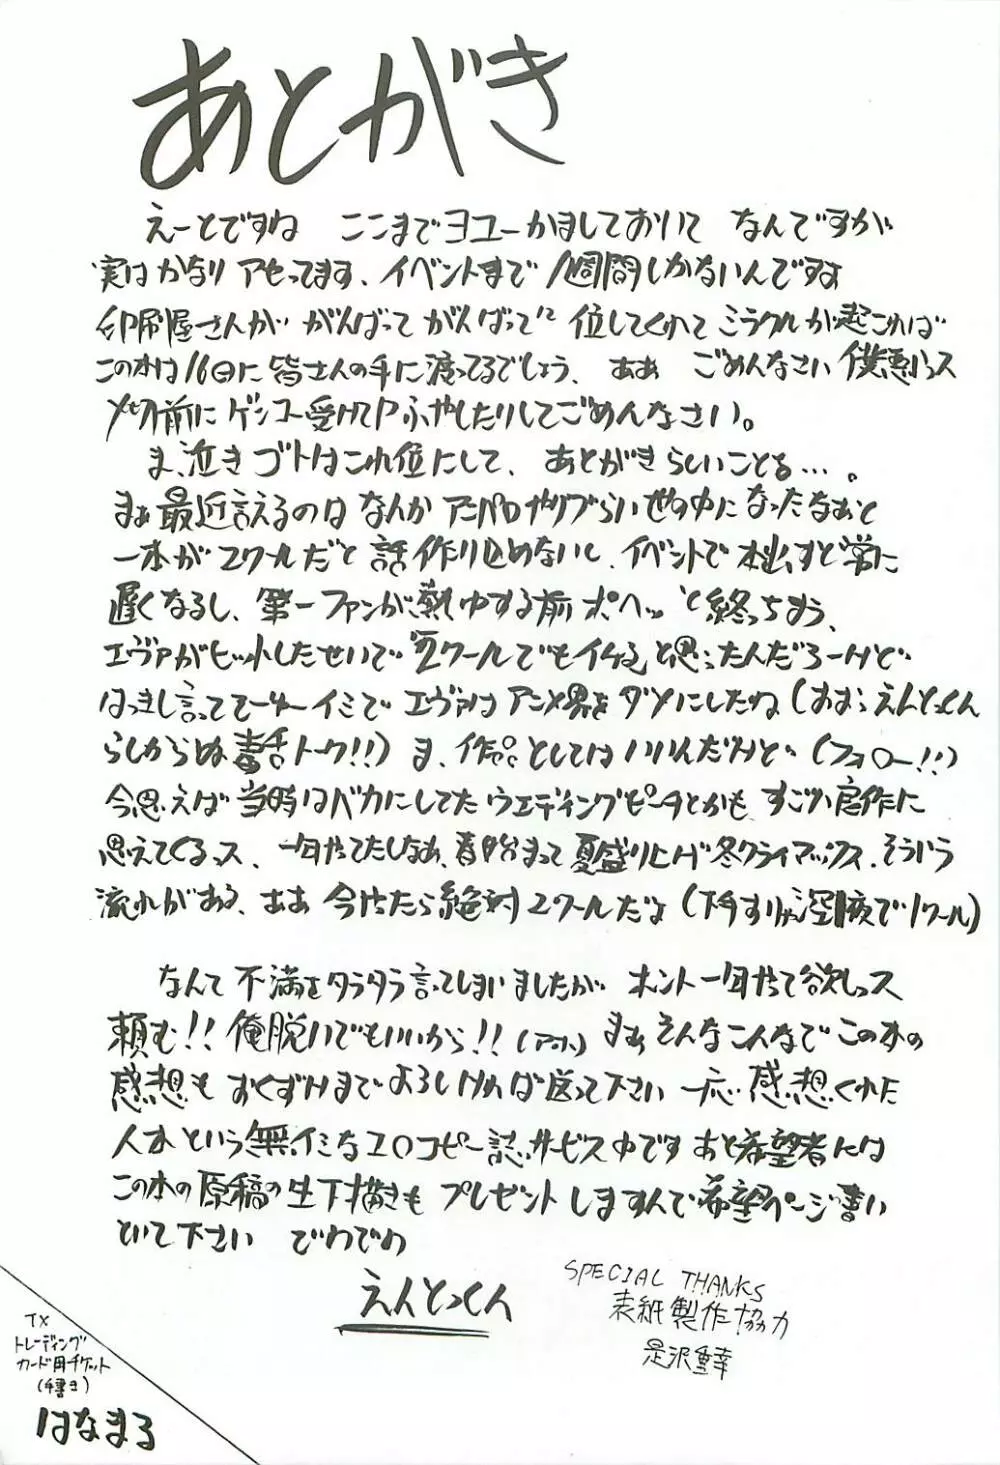 あとがき
えーとですね ここまでヨユーかましておいて なんですが
実はかなりアセってます、イベントまで1週間しかないんですよ
印刷屋さんが がんばってがんばって 位してくれて ミラクルが起これば
この本は16日に皆さんの手に渡ってるでしょう、ああ ごめんなさい 僕悪いっス
〆切前にゲンコー受けてPふやしたりしてごめんなさい。
ま、泣きゴトはこれ位にして、 あとがきらしいことを…。
まぁ最近言えるのは なんか アニパロやりづらい世の中になったなぁと
一本が2クールだと 話作り込めないし、イベントで本出すと常に
遅くなるし、第一ファンが熱中する前 ポヘッ と終っちまう、
エヴァがヒットしたせいで “2クールでもイケる” と思ったんだろーけど
はっきし言っててーイミで エヴァは アニメ界を ダメにしたね (おおっ えんとっくん
らしからぬ毒舌トーク!!) ま、作品としては いいんだけど (フォロー!!)
今思えば 当時はバカにしてた ウエディングピーチとかも すごい良作に
思えてくるっス、 一年やってたしなあ、春始まって 夏盛り上げ 冬クライマックス、そういう
流れがある、ああ 今やったら絶対2クールだよ (下手すりゃ深夜で1クール)
なんて 不満をタラタラ言ってしまいましたが ホント一年やって欲しっス
頼む!! 俺脱いでもいいから!! (アホ) まぁそんなこんなで この本の
感想も おくづけまで よろしければ 送って下さい 一応 感想くれた
人本という無イミなエロコピー誌サービス中です あと希望者には
この本の原稿の生下描きも プレゼント しますんで 希望ページ 書い
といて下さい でわでわ
えんとっくん
SPECIAL THANKS
表紙製作協力
是沢重幸
TX
トレーディング
カード用チケット
(手書き)
はなまる